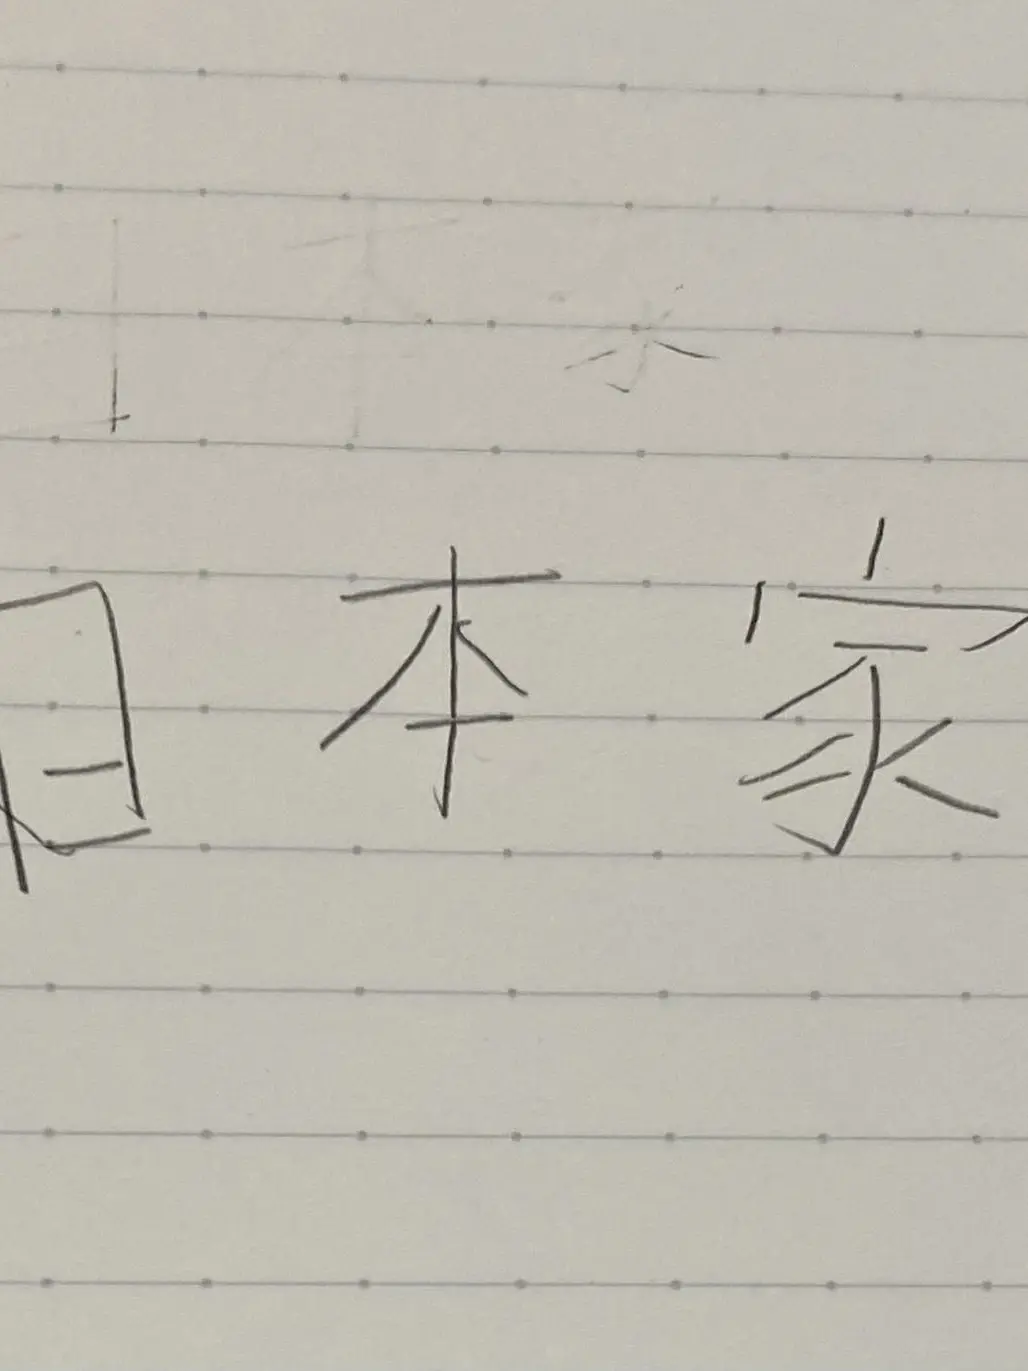 日本家